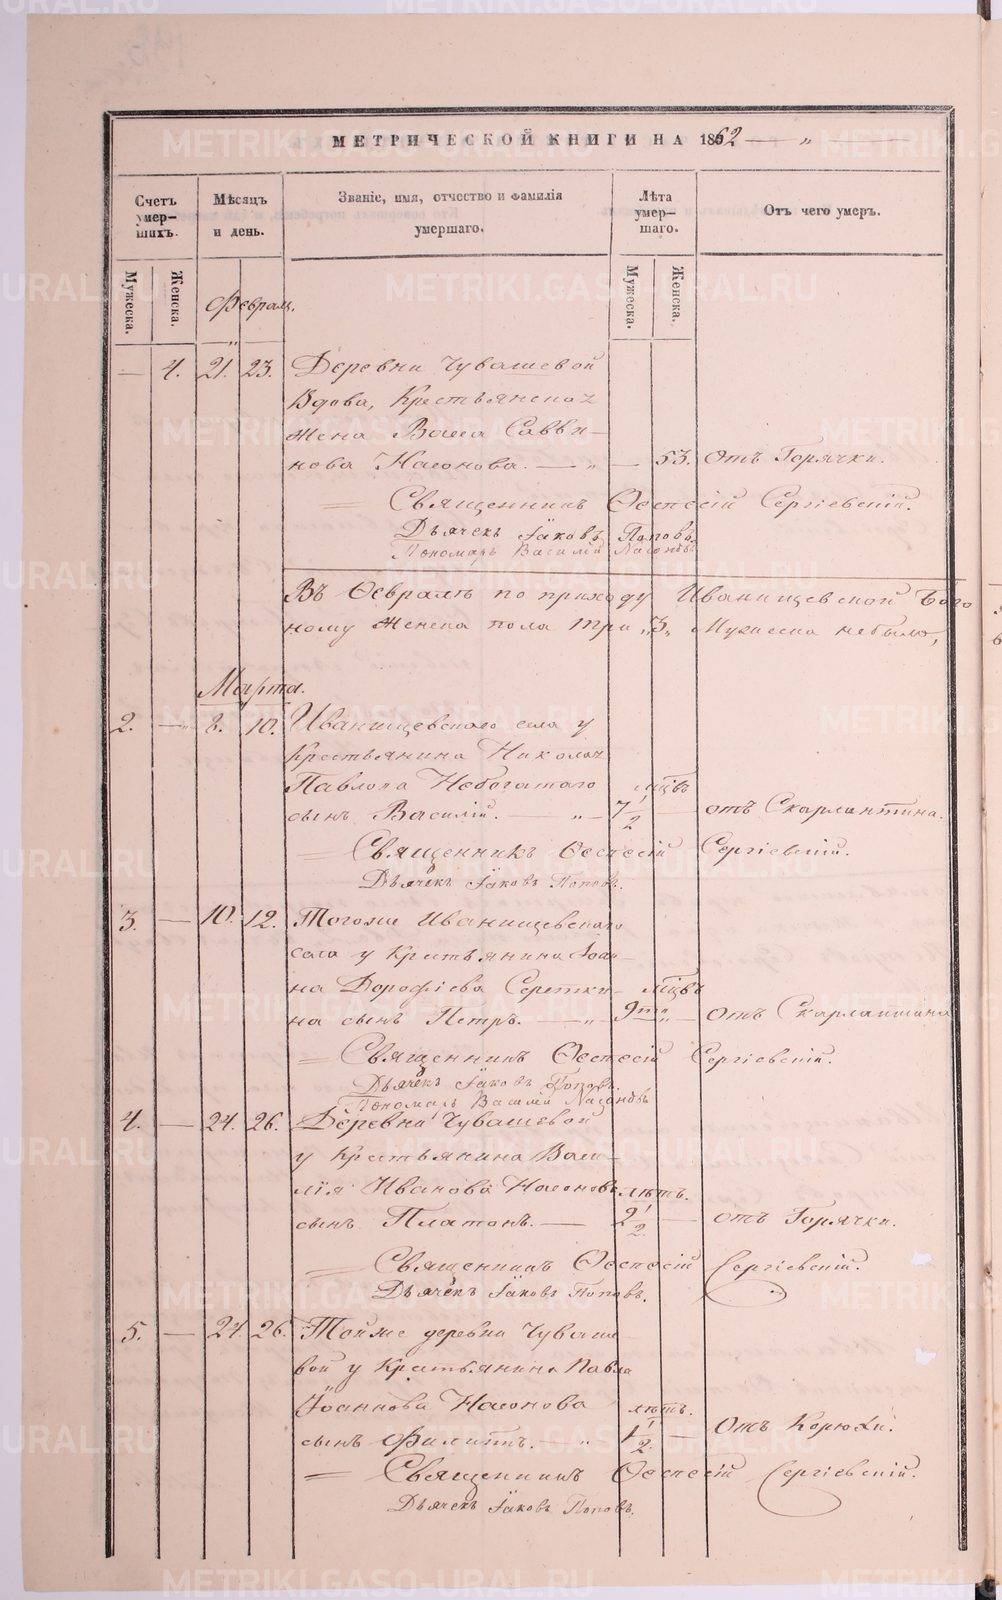 МЕТРИЧЕСКОЙ КНИГИ НА 1862
Счетъ умер-шихъ.
Мѣсяцъ и день.
Званіе, имя, отчество и фамилія умершаго.
Лѣта умер-шаго.
Отъ чего умеръ.
Мужеска.
Женска.
Мужеска.
Женска.
Февраль.
— 4. 21. 23. Деревни Чувашевой
Вдова, Крестьянская
жена Васса Савви-
нова Насонова. — „ — 53. Отъ Горячки.
Священникъ Ѳеспесій Сергіевскій.
Дьячекъ Іаковъ Поповъ.
Пономарь Василій Насоновъ
Въ Февралѣ по приходу Иванищевской Бого
ному женска пола три „3„ Мужеска небыло,
Марта.
2. — 8. 10. Иванищевскаго села у
Крестьянина Николая
Павлова Небогатаго мцвъ
сынъ Василій. — „ — 7 1/2 — отъ Скарлантина.
Священникъ Ѳеспесій Сергіевскій.
Дьячекъ Іаковъ Поповъ.
3. — 10. 12. Тогоже Иванищевскаго
села у Крестьянина Іоан-
на Дорофіева Сереткина мцвъ
сынъ Петръ. — „ — 9ти — Отъ Скарлантина
Священникъ Ѳеспесій Сергіевскій.
Дьячекъ Іаковъ Поповъ.
Пономарь Василій Насоновъ
4. — 24. 26. Деревни Чувашевой
у Крестьянина Васи-
лія Иванова Насонова лѣтъ.
сынъ Платонъ. — 2 1/2 — отъ Горячки.
Священникъ Ѳеспесій Сергіевскій.
Дьячекъ Іаковъ Поповъ.
5. — 24. 26. Тойже деревни Чуваше-
вой у Крестьянина Павла
Іоаннова Насонова лѣтъ.
сынъ Филиппъ. — „ 1 1/2 — Отъ Корюхи.
Священникъ Ѳеспесій Сергіевскій.
Дьячекъ Іаковъ Поповъ.
METRIKI.GASO-URAL.RU